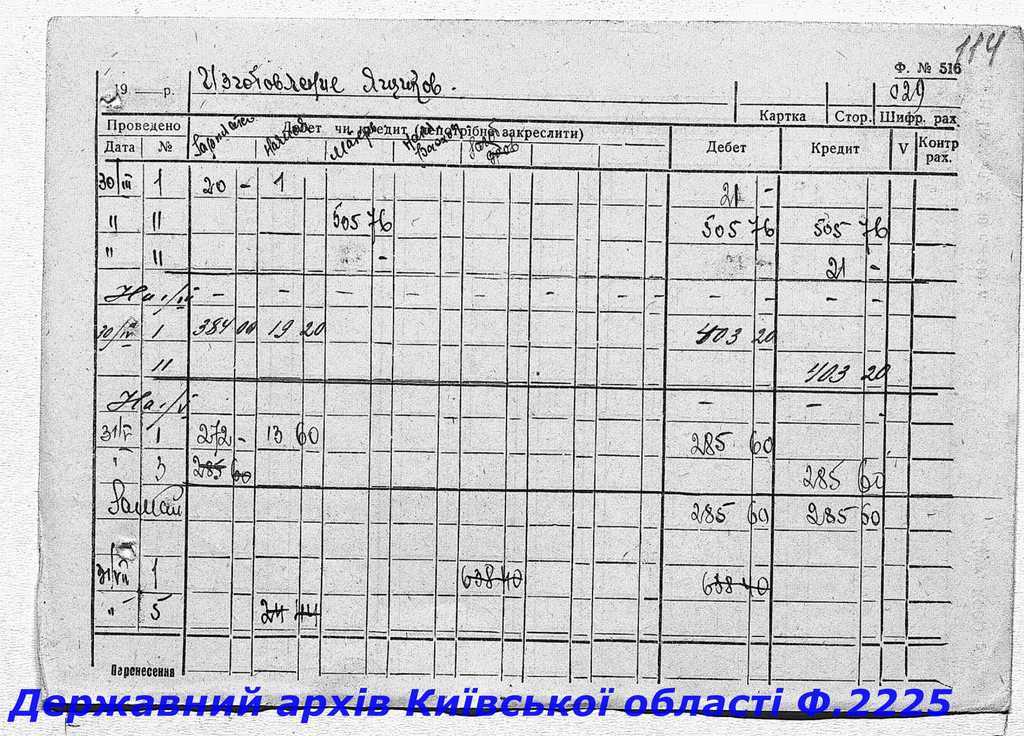 114
Ф. № 516
19 — р. Изготовление Ящиков.
029
Картка Стор. Шифр. рах.
Проведено Дебет чи кредит (непотрібне закреслити) Дебет Кредит V Контр рах.
Дата №
30/III 1 20 - 1 21 -
" " 505 76 505 76 505 76
" " - 21 -
На 1/IV - - - - - - - - - - - -
30/IV 1 384 00 19 20 403 20
" 403 20
На 1/V - -
31/V 1 272 - 13 60 285 60
" 3 285 60 285 60
285 60 285 60
31/VII 1 638 40 638 40
" 5 24 44
Перенесення
Державний архів Київської області Ф.2225